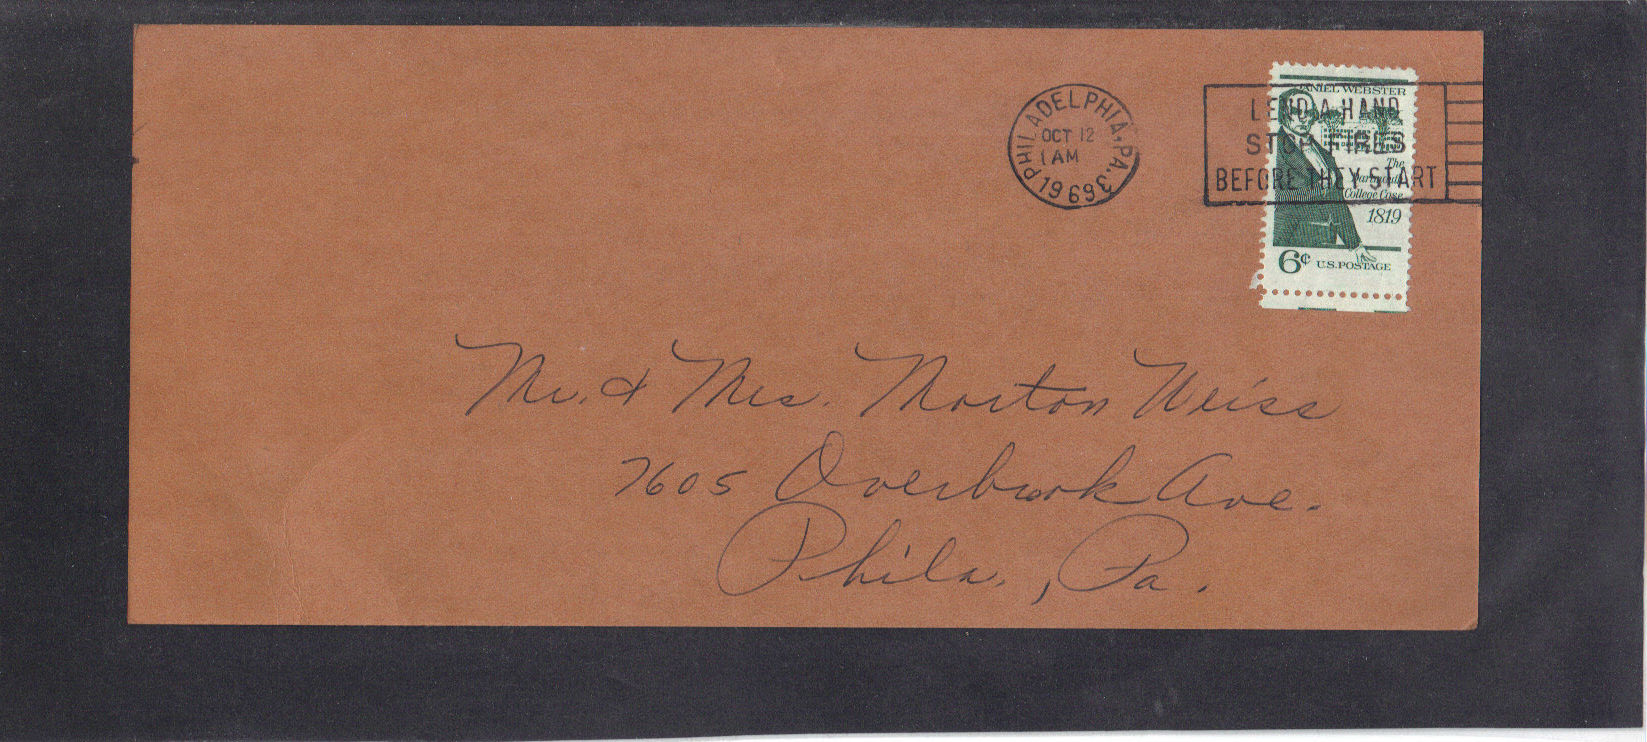 PHILADELPHIA, PA.
OCT 12
1 AM
1969
LEND A HAND
STOP FIRES
BEFORE THEY START
DANIEL WEBSTER
The
Dartmouth
College Case
1819
6¢ U.S.POSTAGE
Mr. & Mrs. Morton Weiss
7605 Overbrook Ave.
Phila., Pa.